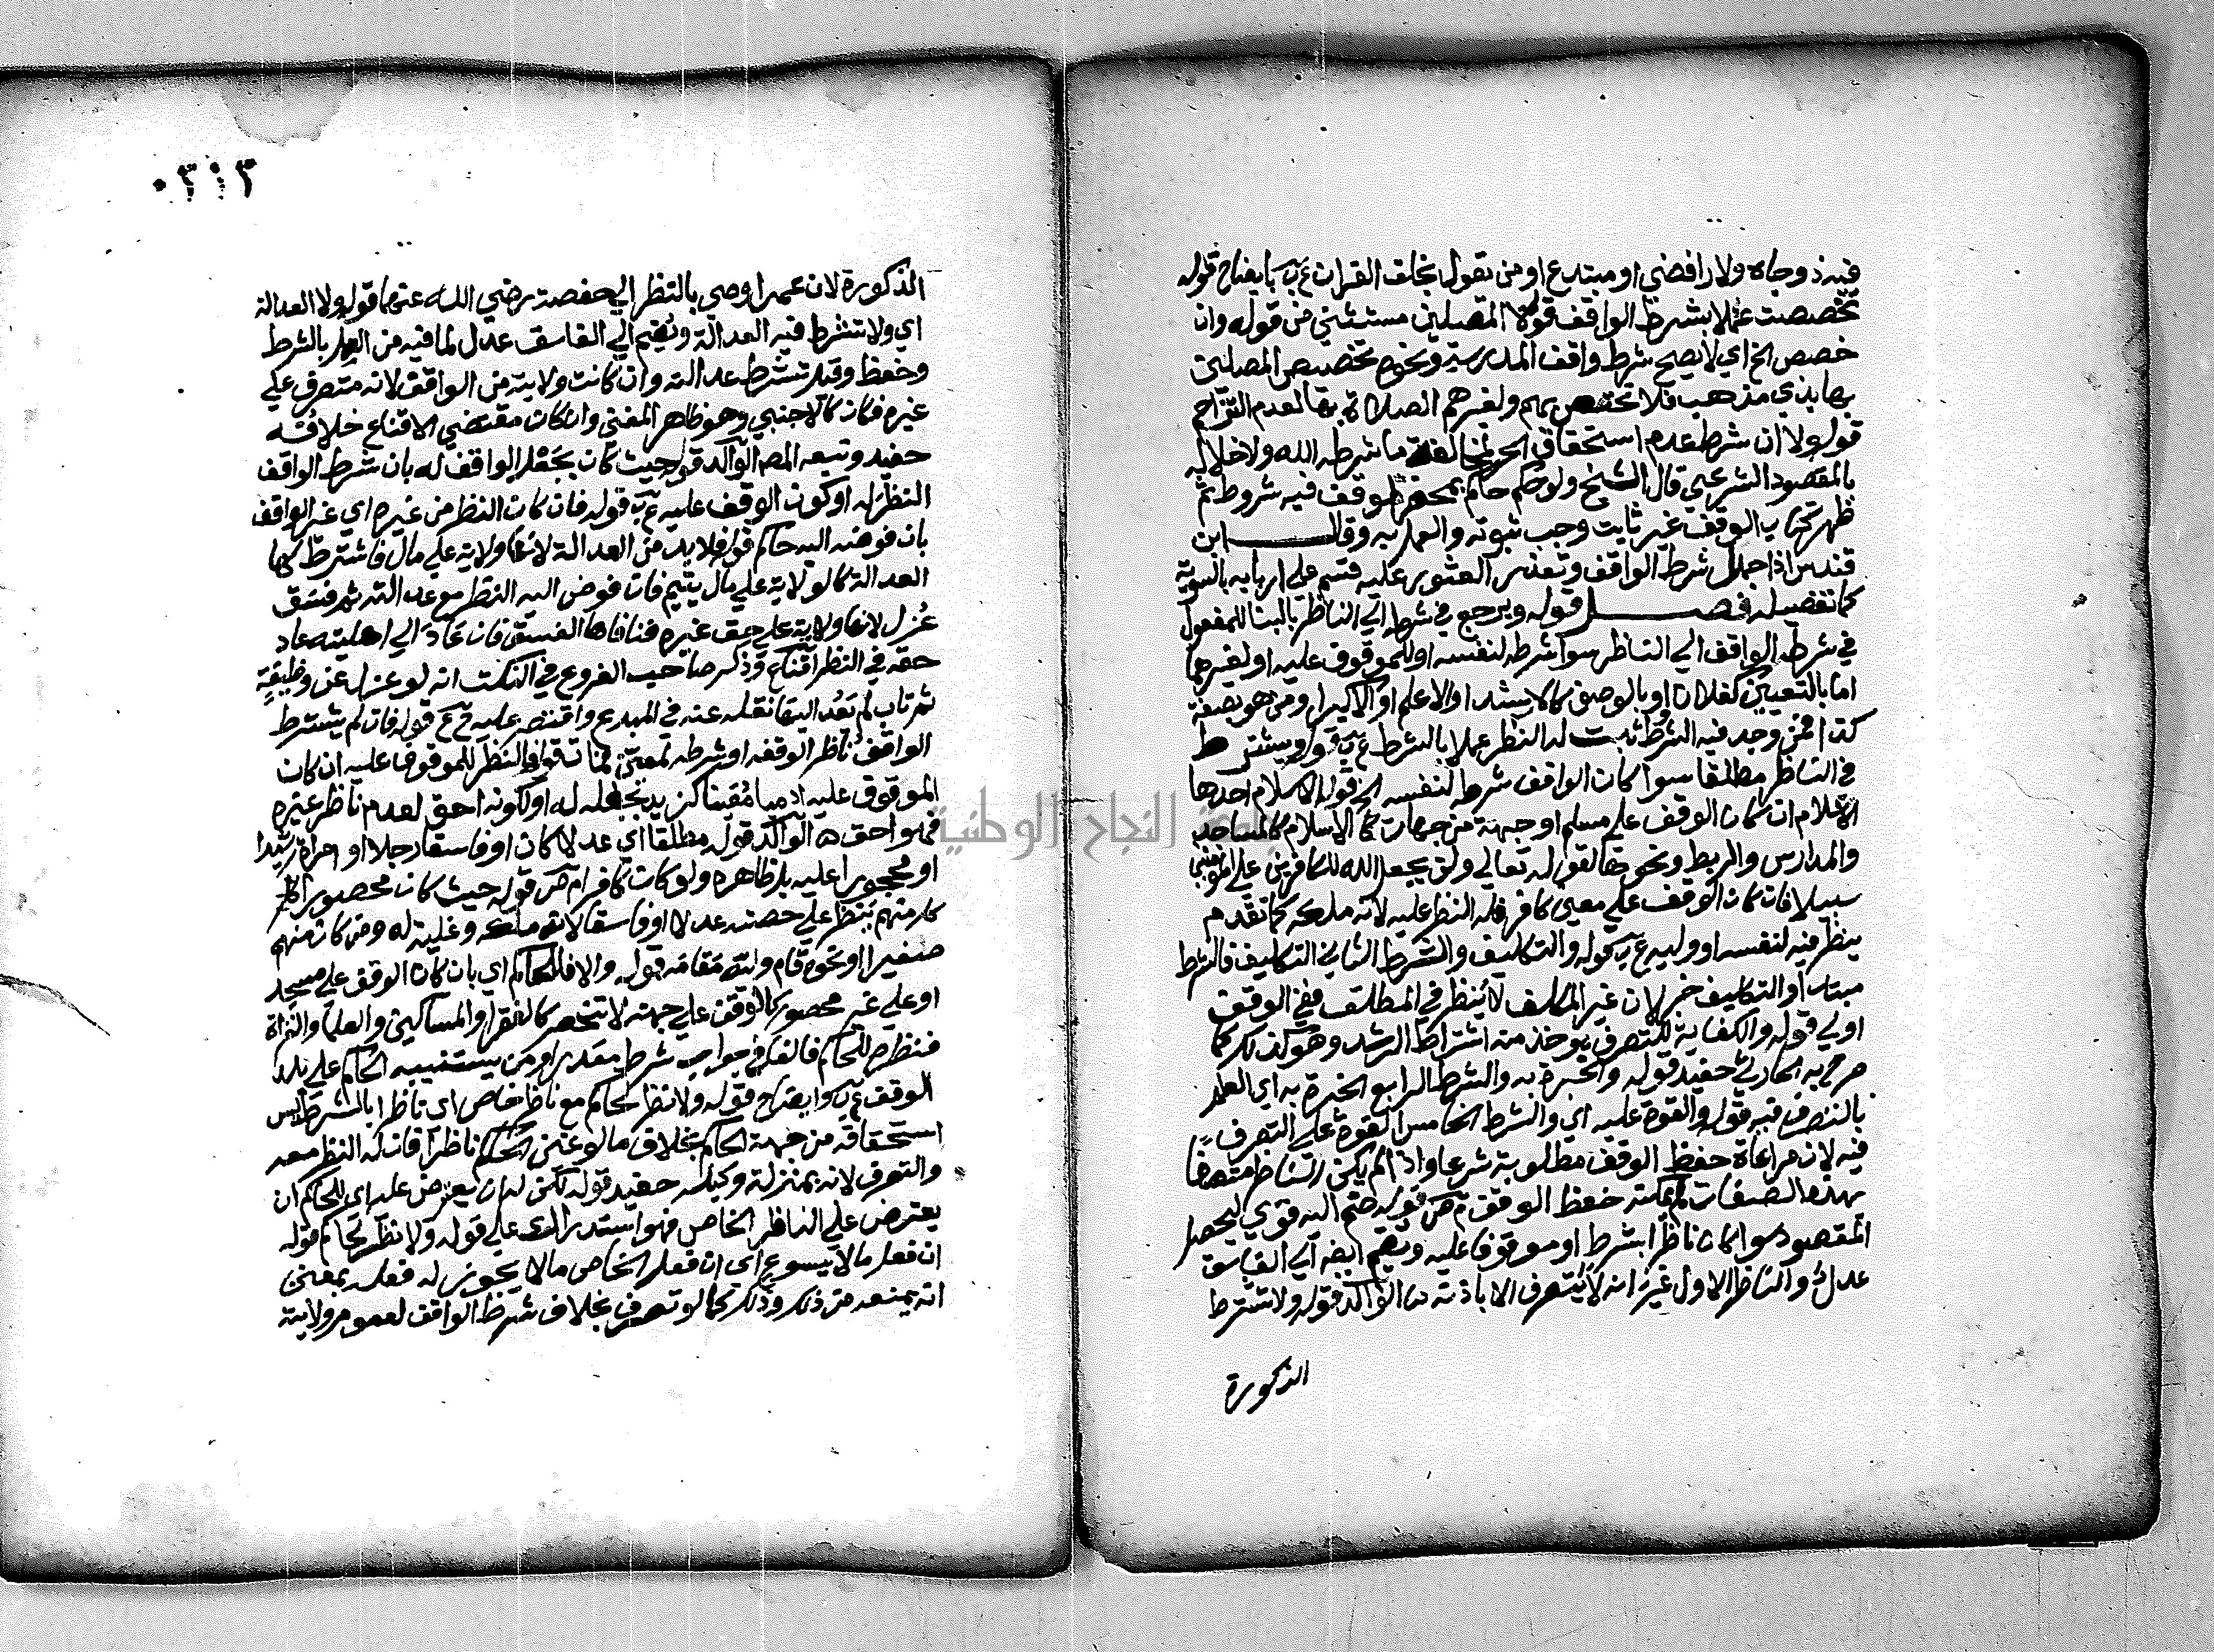 فيه ذو جاه ولا رافضي او مبتدع او من يقول بخلق القران ع ب بايضاح قوله
تخصصت عملا بشرط الواقف قوله لا المصلين مستثنى من قوله وان
خصص الخ اي لا يصح شرط واقف المدرسة ونحوه تخصيص المصلين
بها بذي مذهب فلا تختص بهم ولغيرهم الصلاة بها لعدم التزاحم
قوله ولا ان شرط عدم استحقاق لمخالفة ما شرطه الله ولاخلاله
بالمقصود الشرعي قال الشيخ ولو حكم حاكم بمحضر لوقف فيه شروط ثم
ظهر كتاب الوقف غير ثابت وجب ثبوته والعمل به وقال ابن
قندس اذا جهل شرط الواقف وتعذر العثور عليه قسم على اربابه بالسوية
كما تفصيله فصل قوله ويرجع في شرطه الى الناظر بالبنا للمفعول
في شرطه الواقف الى الناظر سوا شرطه لنفسه او للموقوف عليه او لغيرهما
اما بالتعيين كفلان او بالوصف كالارشد او الاعلم او الاكبر او من هو بصفة
كذا فمن وجد فيه الشرط ثبت له النظر عملا بالشرط ع ب قوله ويشترط
في الناظر مطلقا سوا كان الواقف شرطه لنفسه الخ قوله الاسلام احدها
الاسلام ان كان الوقف على مسلم او جهة من جهات الاسلام كالمساجد
والمدارس والربط ونحوها لقوله تعالى ولن يجعل الله للكافرين على المومنين
سبيلا فان كان الوقف على معين كافر فله النظر عليه لانه ملكه كما تقدم
ينظر فيه لنفسه او وليه ع ب قوله والتكليف والشرط الثاني التكليف فالشرط
مبتدا والتكليف خبر لان غير المكلف لا ينظر في المطلق ففي الوقف
اولى قوله والكفاية للتصرف يوخذ منه اشتراط الرشد وهو كذلك كما
صرح به الحارثي حفيد قوله والخبرة به والشرط الرابع الخبرة به اي العلم
بالتصرف فيه قوله والقوة عليه اي والشرط الخامس القوة على التصرف
فيه لان مراعاة حفظ الوقف مطلوبة شرعا واذا لم يكن الناظر متصفا
بهذه الصفات لم يمكنه حفظ الوقف م ص قوله ضم اليه قوي ليحصل
المقصود سوا كان ناظرا بشرط او موقوفا عليه ويضم ايضه الى الفاسق
عدل والناظر الاول غير انه لا يتصرف الا باذنه ه الوالد قوله ولا تشترط
الذكورة
الذكورة لان عمر اوصى بالنظر الى حفصة رضي الله عنهما قوله ولا العدالة
اي ولا تشترط فيه العدالة ويضم الى الفاسق عدل لما فيه من العمل بالشرط
وحفظ وقيل تشترط عدالته وان كانت ولايته من الواقف لانه متصرف على
غيره فكان كالاجنبي وهو ظاهر المغني وان كان مقتضى الاقناع خلافه
حفيد وتبعه المص الوالد قوله حيث كان بجعل الواقف له بان شرط الواقف
النظر له او كون الوقف عليه ع ب قوله فان كان النظر من غيره اي غير الواقف
بان فوضه اليه حاكم قوله فلا بد من العدالة لانها ولاية على مال فاشترط لها
العدالة كالولاية على مال يتيم فان فوض اليه النظر مع عدالته ثم فسق
عزل لانها ولاية على حق غيره فنافاها الفسق فان عاد الى اهليته عاد
حقه في النظر اقناع وذكر صاحب الفروع في النكت انه لو عزل عن وظيفة
ثم تاب لم تعد اليه نقله عنه في المبدع واقتصر عليه ق ع قوله فان لم يشترط
الواقف ناظر الوقفه او شرطه لمعين فمات قوله فالنظر للموقوف عليه ان كان
الموقوف عليه ادميا معينا كزيد بجعله له او لكونه احق لعدم ناظر غيره
فهو احق ه الوالد قوله مطلقا اي عدلا كان او فاسقا رجلا او امراة رشيدا
او محجورا عليه بل ظاهره ولو كان كافرا م ص قوله حيث كان محصورا
كل منهم ينظر على حصته عدلا او فاسقا لانه ملكه وغلته له ومن كان منهم
صغيرا او نحوه قام وليه مقامه قوله والا فللحاكم اي بان كان الوقف على مسجد
او على غير محصور كالوقف على جهة لا تنحصر كالفقرا والمساكين والعلما والغزاة
فنظره للحاكم فالفا في جواب شرط مقدر او من يستنيبه الحاكم على بلد
الوقف ع ب وايضاح قوله ولا نظر لحاكم مع ناظر خاص اي ناظرا بالشرط ليس
استحقاقه من جهة الحاكم بخلاف ما لو عين الحاكم ناظرا فان له النظر معه
والتصرف لانه بمنزلة وكيله حفيد قوله لكن له ان يعترض عليه اي للحاكم ان
يعترض على الناظر الخاص فهو استدراك على قوله ولا نظر لحاكم قوله
ان فعل ما لا يسوغ اي ان فعل الخاص ما لا يجوز له فعله بمعنى
انه يمنعه من ذلك وذلك كما لو تصرف بخلاف شرط الواقف لعموم ولاية